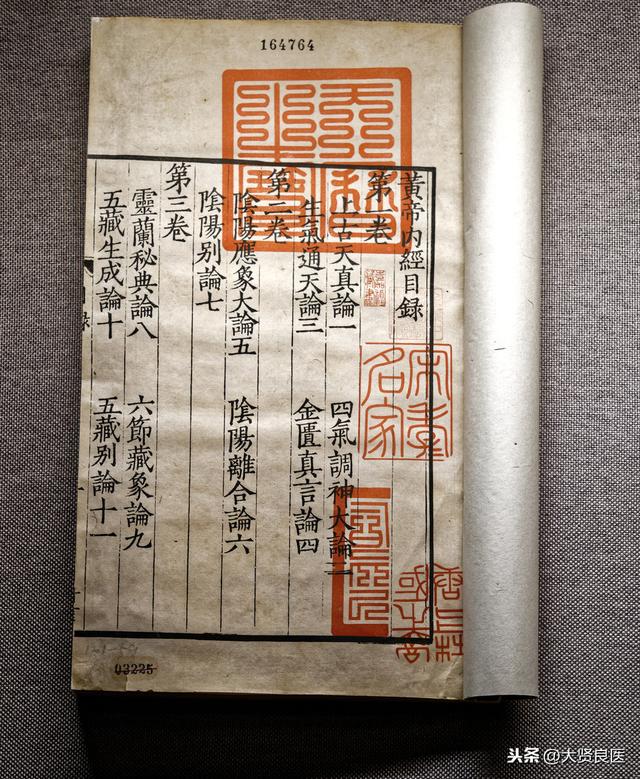 164764
黃帝內經目録
第一卷
上古天真論一 四氣調神大論二
生氣通天論三 金匱真言論四
第二卷
陰陽應象大論五 陰陽離合論六
陰陽别論七
第三卷
靈蘭秘典論八 六節藏象論九
五藏生成論十 五藏别論十一
03225
头条 @大贤良医